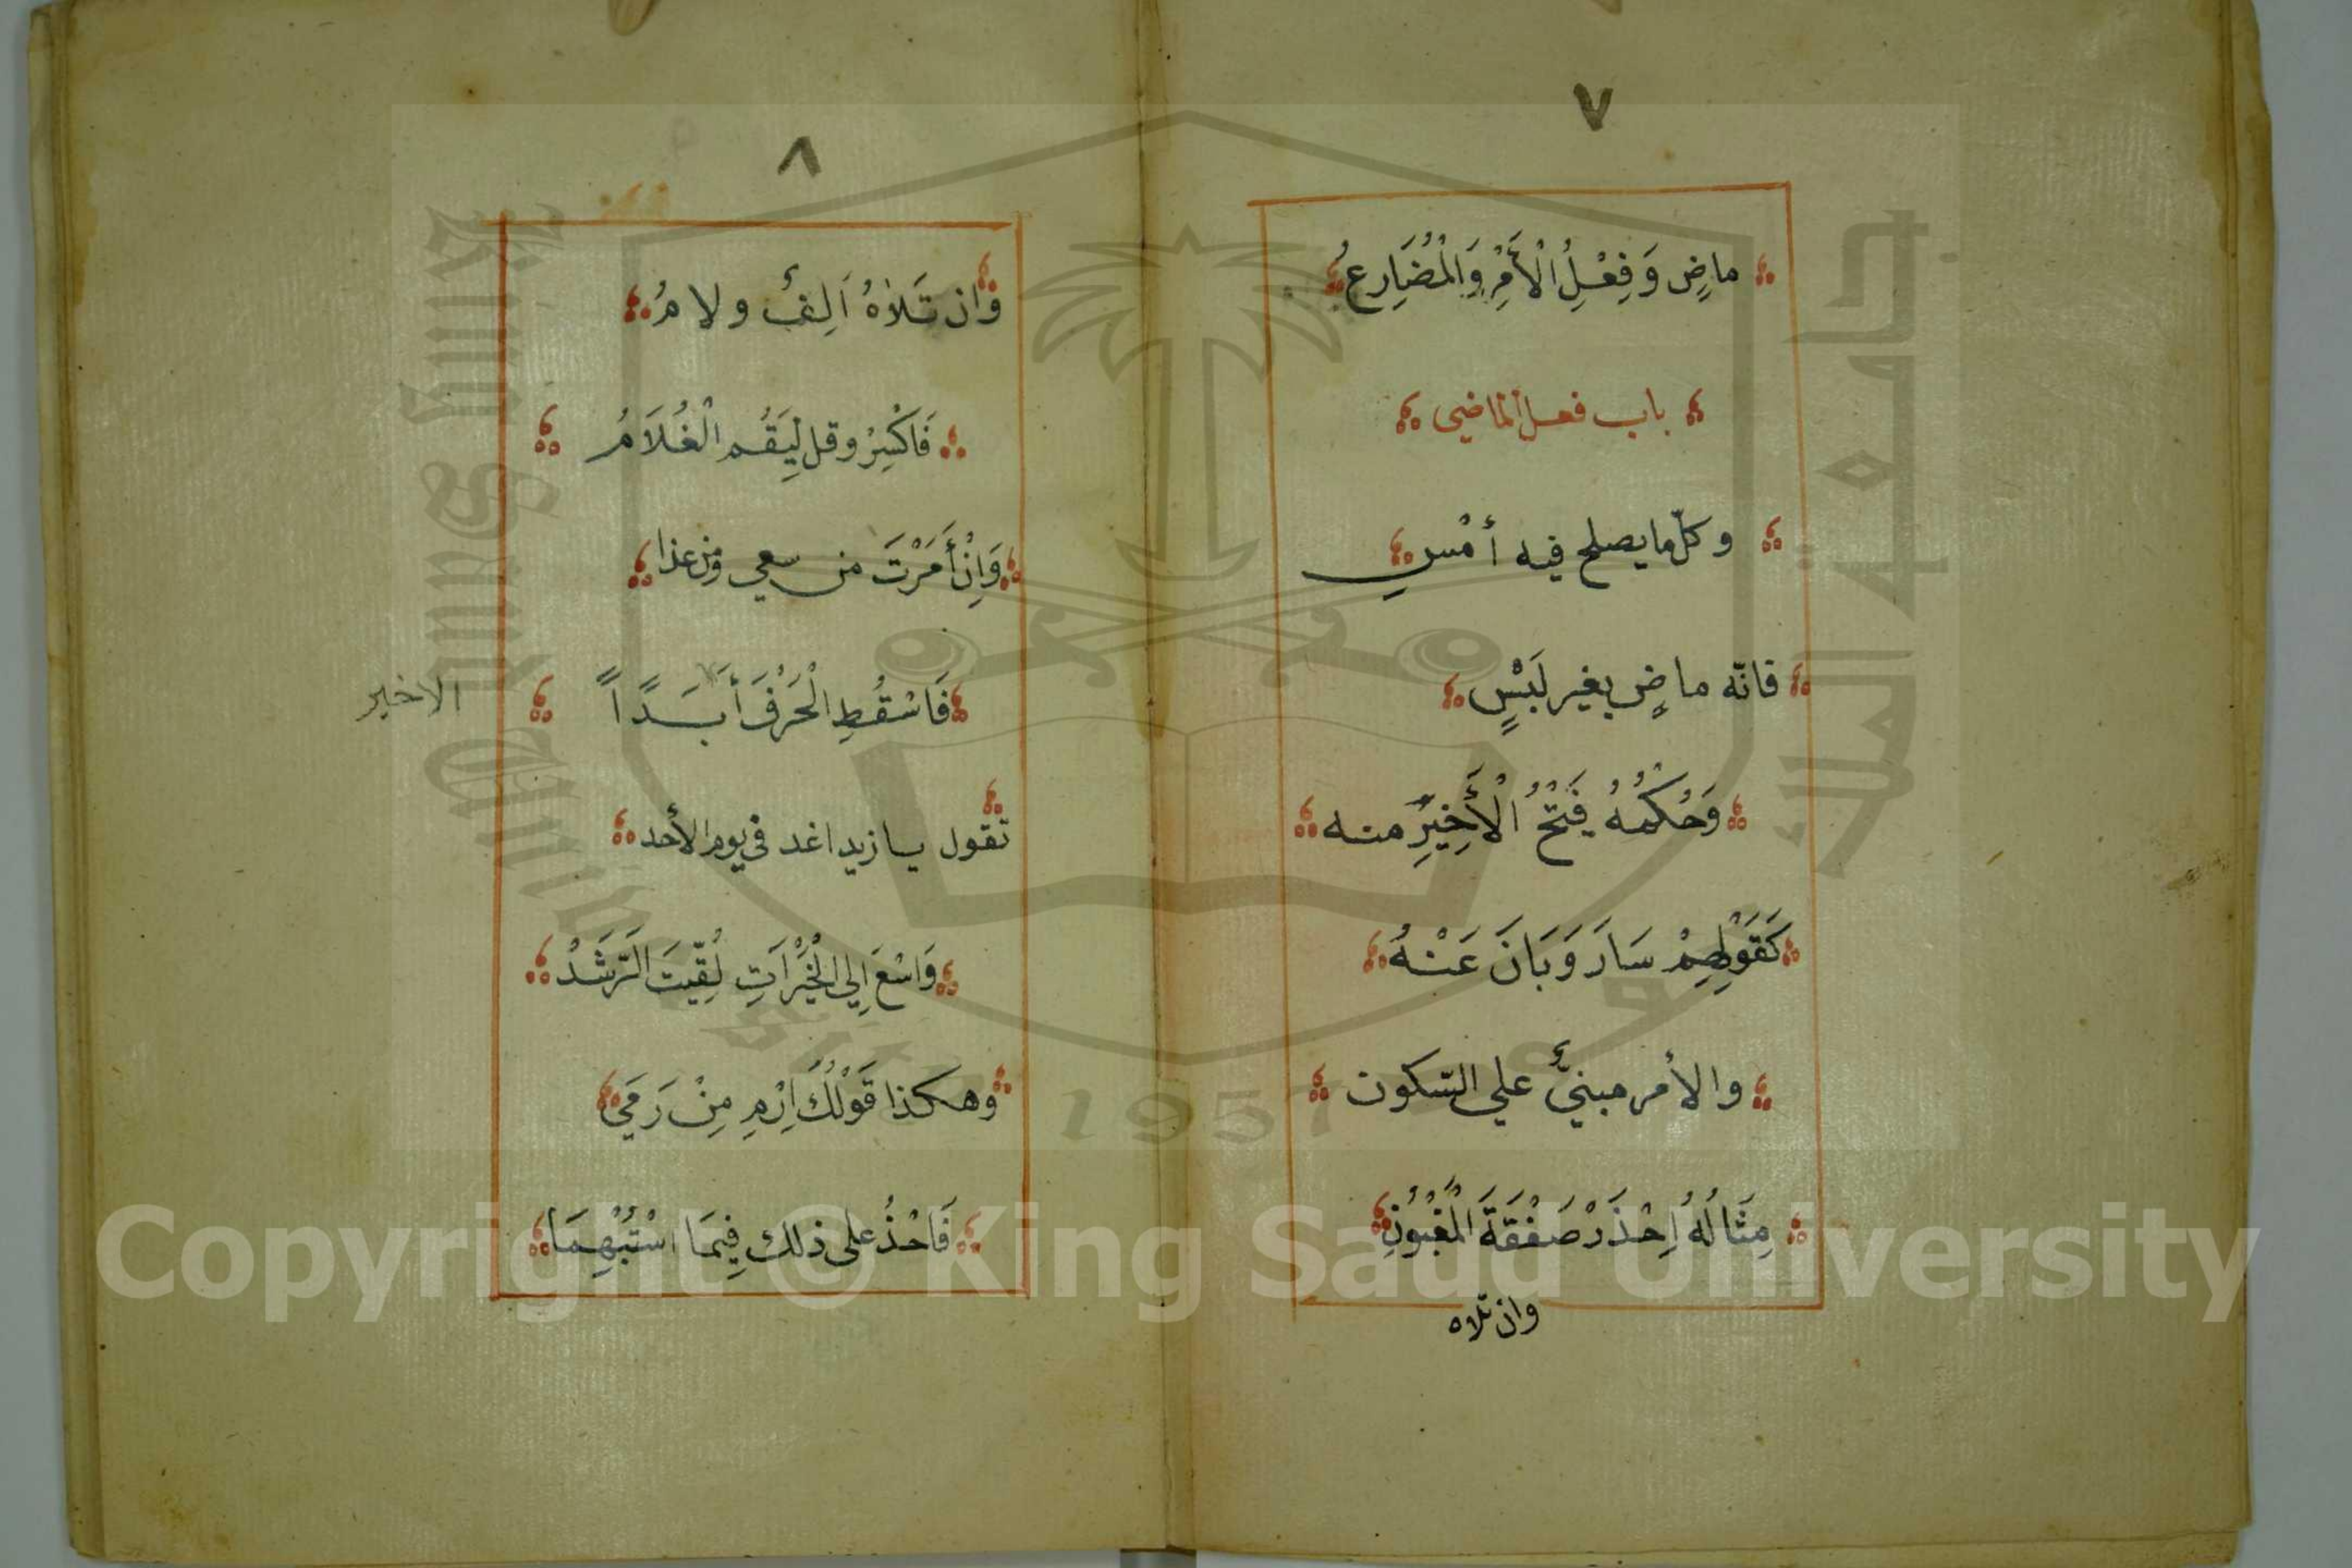 ٧
ماضٍ وَفِعْلِ الْأَمْرِ وَالْمُضَارِعُ
باب فعل الماضي
وكلّ ما يصلح فيه أمْسِ
فانّه ماضٍ بغير لَبْسٍ
وَحُكْمُهُ فَتْحُ الْأَخِيرِ منه
كَقَوْلِهِمْ سَارَ وَبَانَ عَنْهُ
والأمر مبنيٌّ علي السّكون
مِثَالُهُ اِحْذَرْ صَفْقَةَ الْمَغْبُونِ
وان تلاه
٨
وان تَلَاهُ اَلِفٌ ولامُ
فَاكْسِرْ وقل لِيَقُمِ الْغُلَامُ
وَاِنْ أَمَرْتَ من سعي ومن غدا
فَاسْقُطِ الْحَرْفَ أَبَدًا اً
الاخير
تقول يا زيد اغد في يوم الأحد
وَاسْعَ اِلي الْخَيْرَاتِ لُقِّيتَ الرَّشَدْ
وهكذا قَوْلُكَ اِرْمِ مِنْ رَمَي
فَاحْذُ على ذلك فِيمَا اسْتُبْهِمَا
Copyright © King Saud University
King Saud University
جامعة الملك سعود
1957